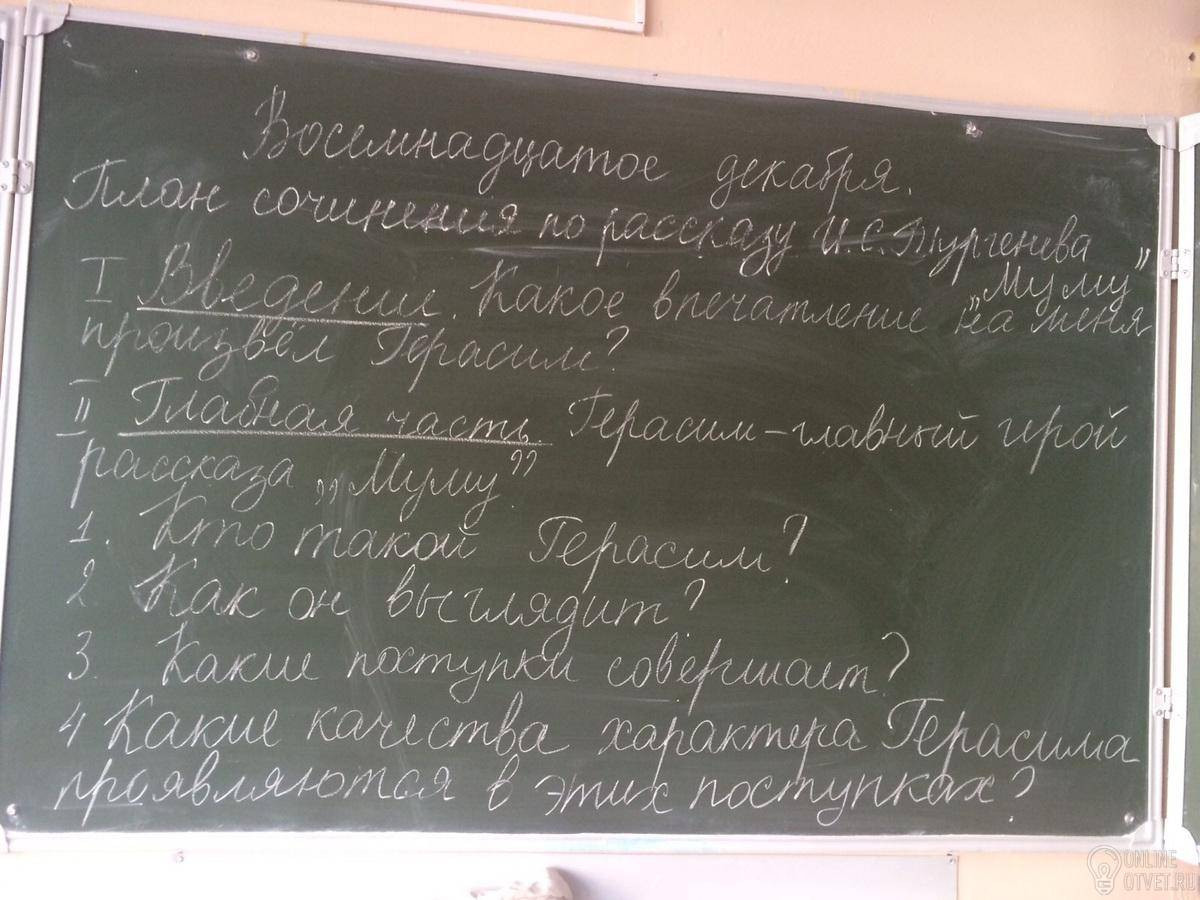 Восемнадцатое декабря.
План сочинения по рассказу И.С.Тургенева
„Муму”
I Введение. Какое впечатление на меня
произвёл Герасим?
II Главная часть. Герасим–главный герой
рассказа „Муму”
1. Кто такой Герасим?
2. Как он выглядит?
3. Какие поступки совершает?
4 Какие качества характера Герасима
проявляются в этих поступках?
ONLINE
OTVET.RU